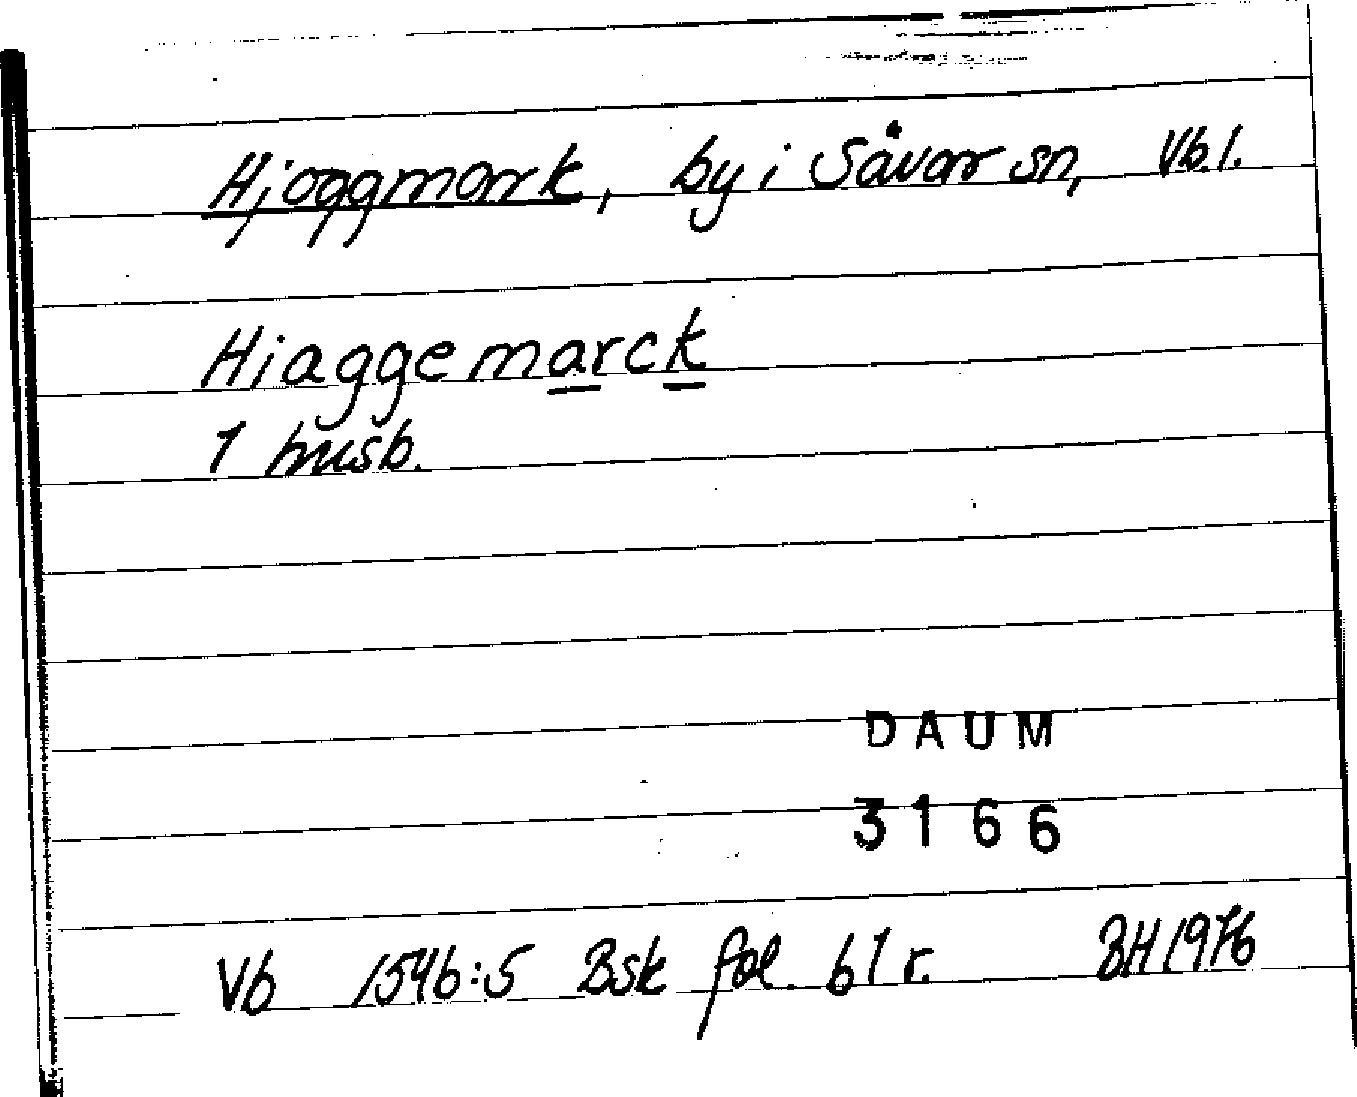 Hjoggmark, by i Sävar sn, Vb.l.
Hiaggemarck
1 husb.
DAUM
3166
Vb 1546:5 Bsk fol. 61 r. BH 1976